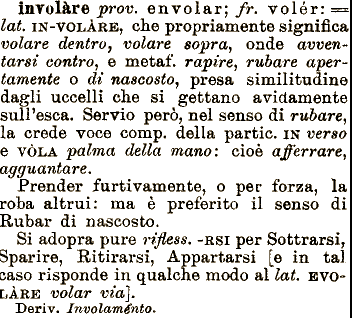 involàre prov. envolar; fr. volér: =
lat. IN-VOLÀRE, che propriamente significa
volare dentro, volare sopra, onde avven-
tarsi contro, e metaf. rapire, rubare aper-
tamente o di nascosto, presa similitudine
dagli uccelli che si gettano avidamente
sull'esca. Servio però, nel senso di rubare,
la crede voce comp. della partic. IN verso
e VÒLA palma della mano: cioè afferrare,
agguantare.
Prender furtivamente, o per forza, la
roba altrui: ma è preferito il senso di
Rubar di nascosto.
Si adopra pure rifless. -RSI per Sottrarsi,
Sparire, Ritirarsi, Appartarsi [e in tal
caso risponde in qualche modo al lat. EVO-
LÀRE volar via].
Deriv. Involaménto.